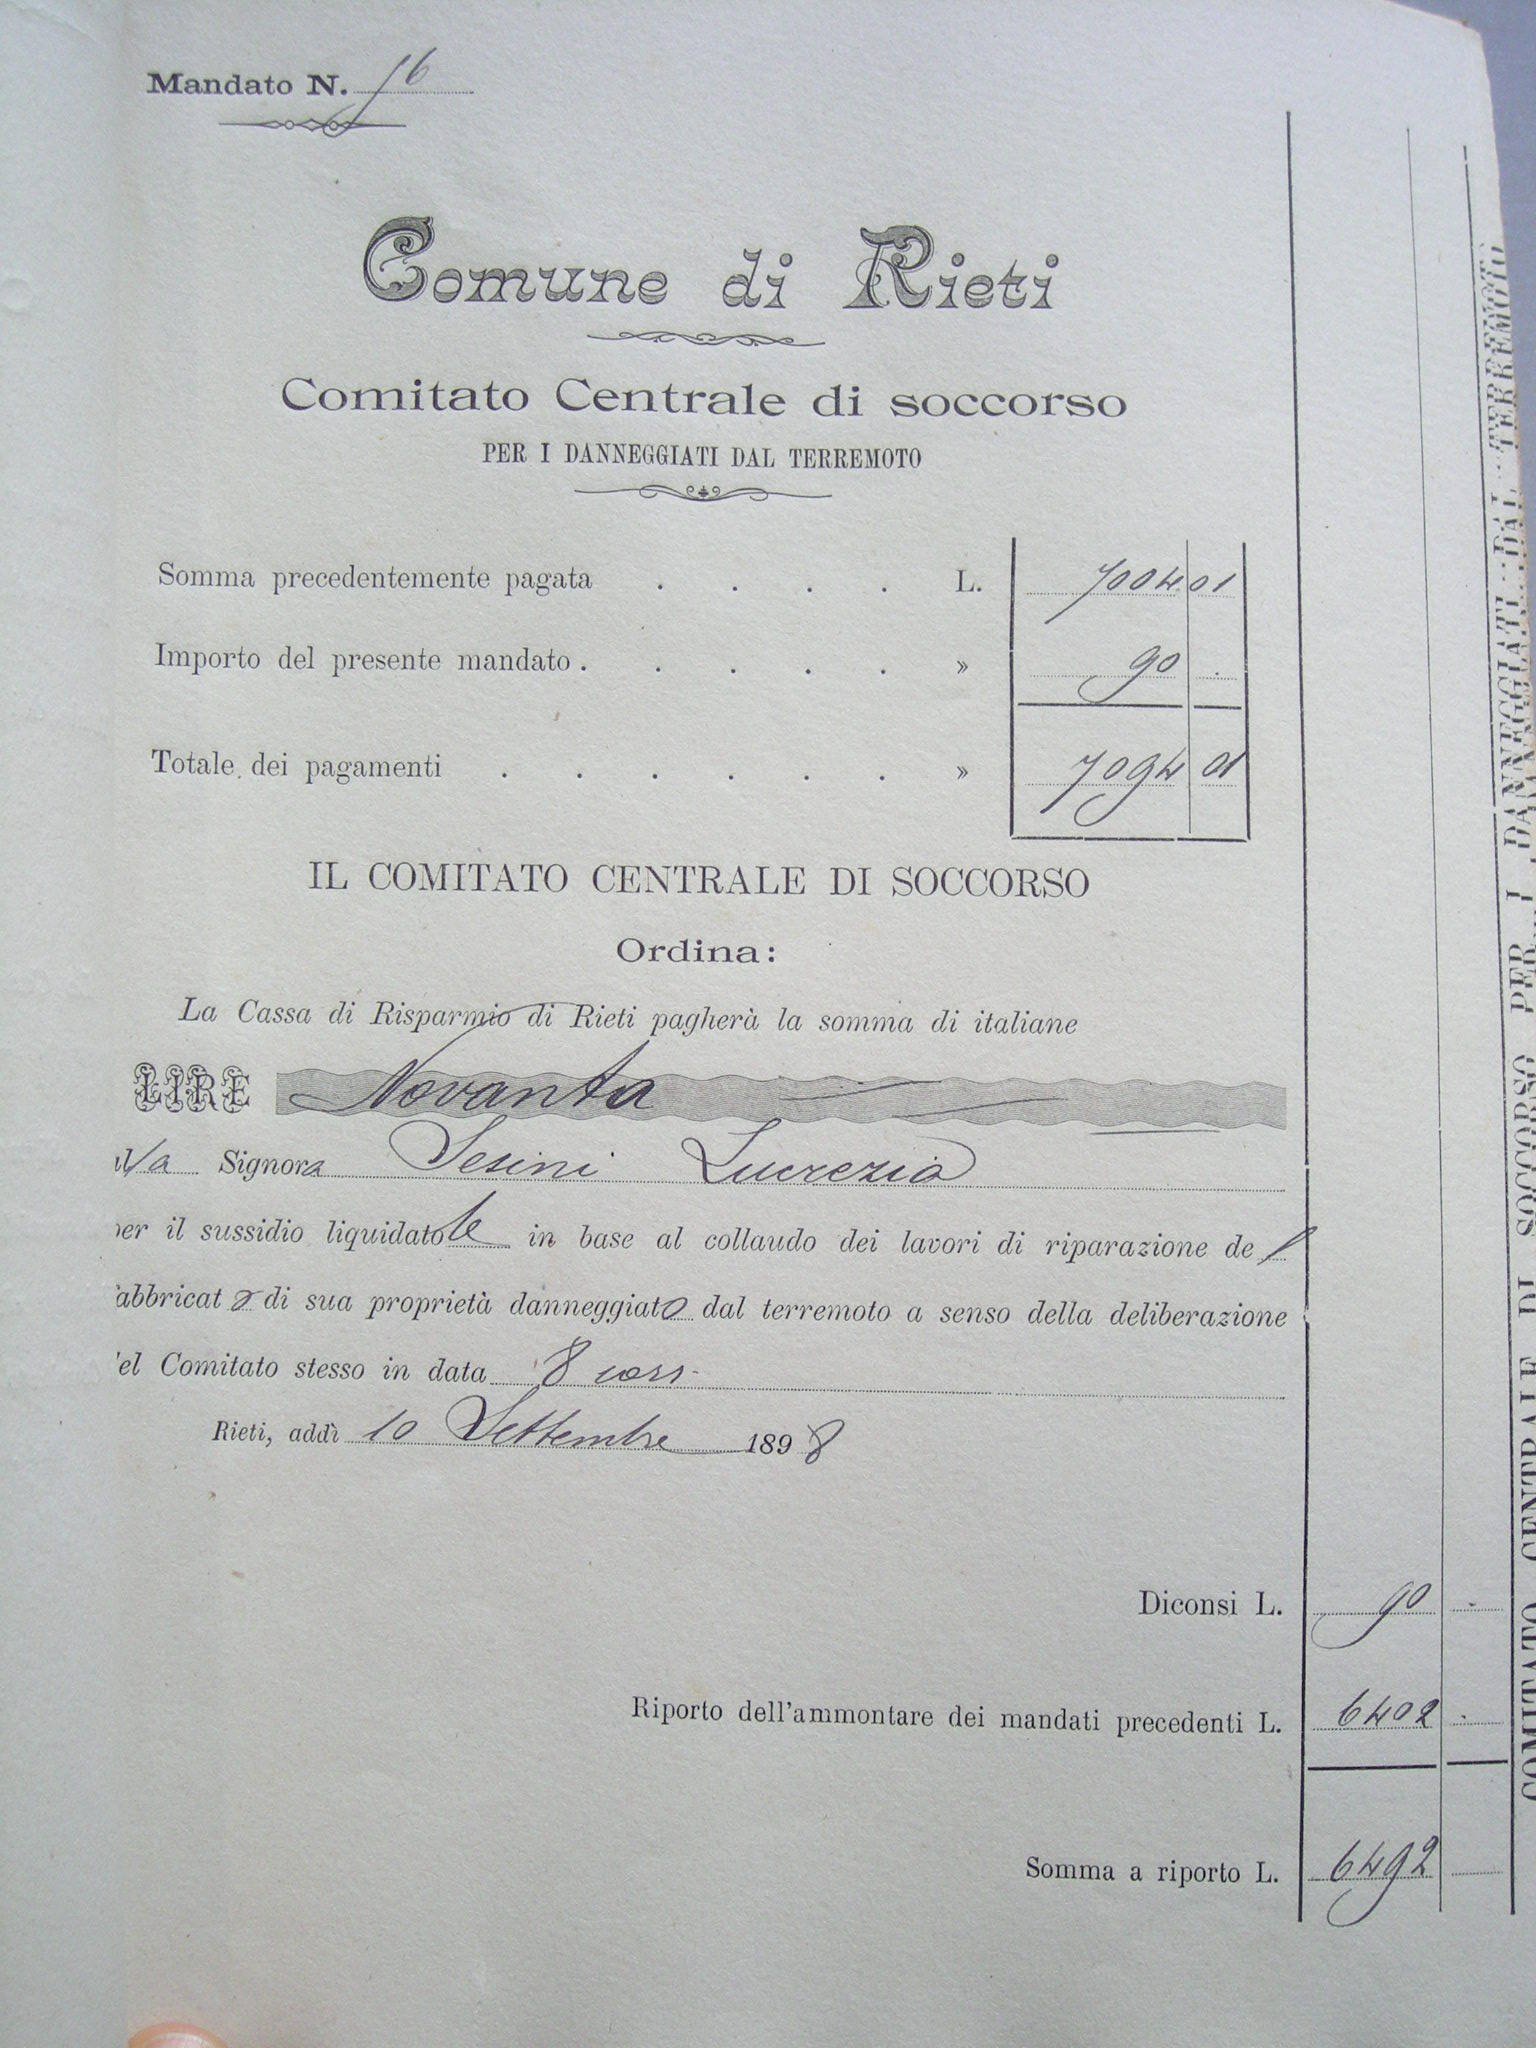 Mandato N. 96
Comune di Rieti
Comitato Centrale di soccorso
PER I DANNEGGIATI DAL TERREMOTO
Somma precedentemente pagata . . . . L. 7004 01
Importo del presente mandato . . . . . » 90 .
Totale dei pagamenti . . . . . . » 7094 01
IL COMITATO CENTRALE DI SOCCORSO
Ordina:
La Cassa di Risparmio di Rieti pagherà la somma di italiane
LIRE Novanta
alla Signora Lucrezia
per il sussidio liquidatole in base al collaudo dei lavori di riparazione del
fabbricato di sua proprietà danneggiato dal terremoto a senso della deliberazione
del Comitato stesso in data 8 corr.
Rieti, addì 10 Settembre 1898
Diconsi L. 90 .
Riporto dell'ammontare dei mandati precedenti L. 6402 .
Somma a riporto L. 6492
COMITATO CENTRALE DI SOCCORSO PER I DANNEGGIATI DAL TERREMOTO